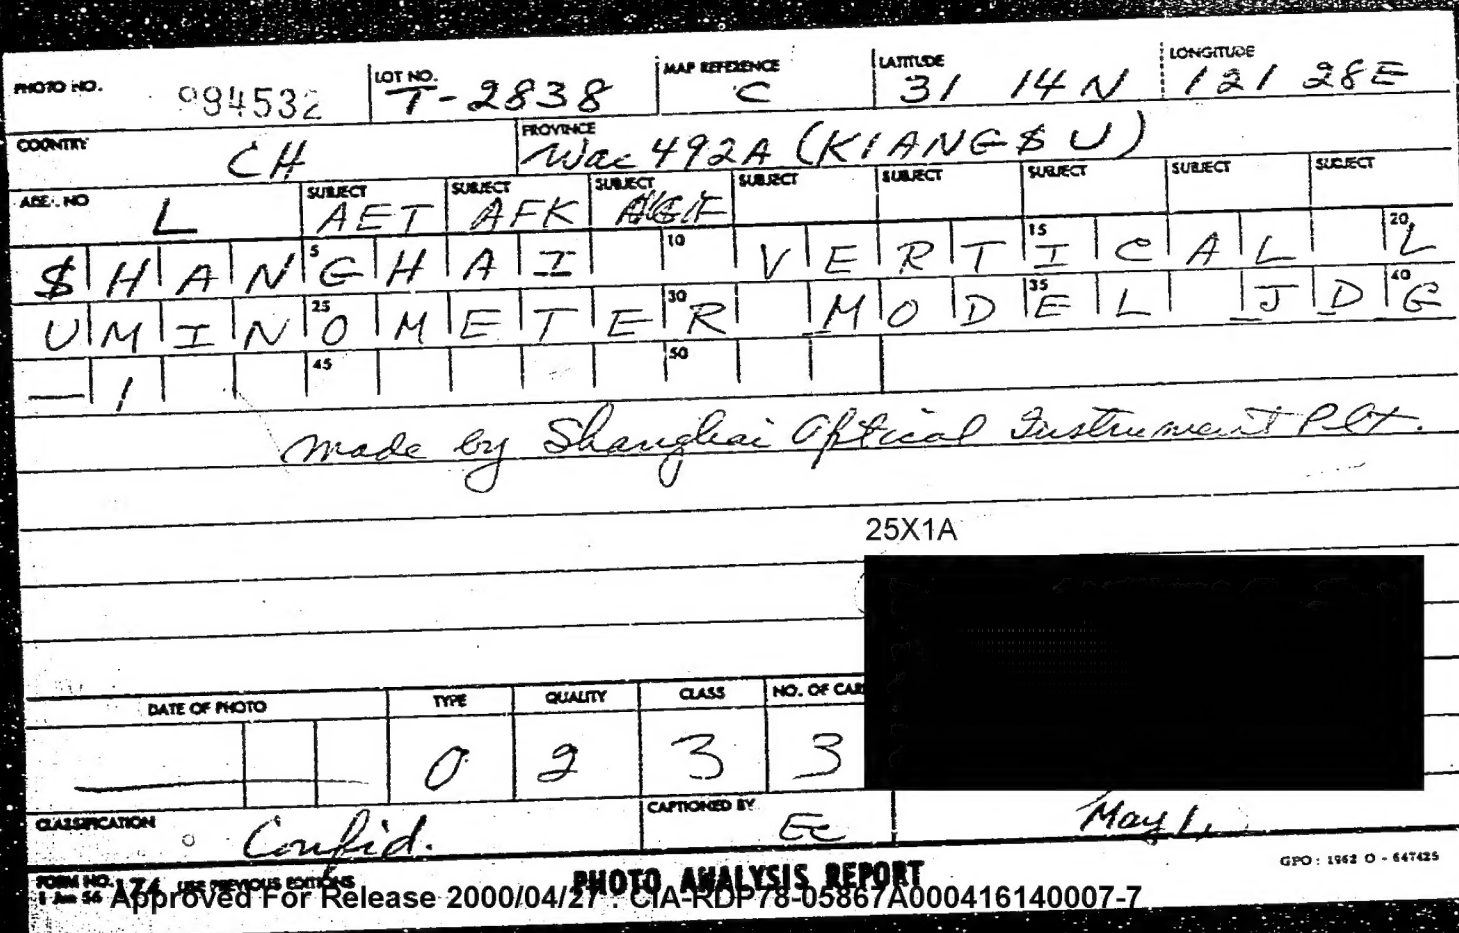 PHOTO NO. 994532 LOT NO. T-2838 MAP REFERENCE C LATITUDE 31 14 N LONGITUDE 121 28E
COUNTRY CH PROVINCE Wac 492A (KIANG$U)
L SUBJECT AET SUBJECT AFK SUBJECT SUBJECT SUBJECT SUBJECT SUBJECT SUBJECT
$HANGHAI VERTICAL L
UMINOMETER MODEL JDG
-1
made by Shanghai Optical Instrument Plt.
25X1A
DATE OF PHOTO TYPE QUALITY CLASS NO. OF
0 2 3 3
CLASSIFICATION Confid. CAPTIONED BY Ec May 1,
GPO : 1962 O - 647425
FORM NO. 174 USE PREVIOUS EDITIONS PHOTO ANALYSIS REPORT
Approved For Release 2000/04/27 : CIA-RDP78-05867A000416140007-7